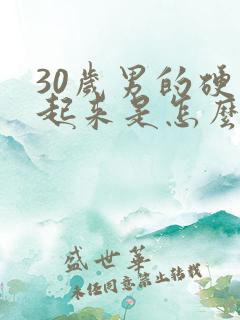 30歲男的硬
起来是怎麼
盛世華
未经同意禁止转载